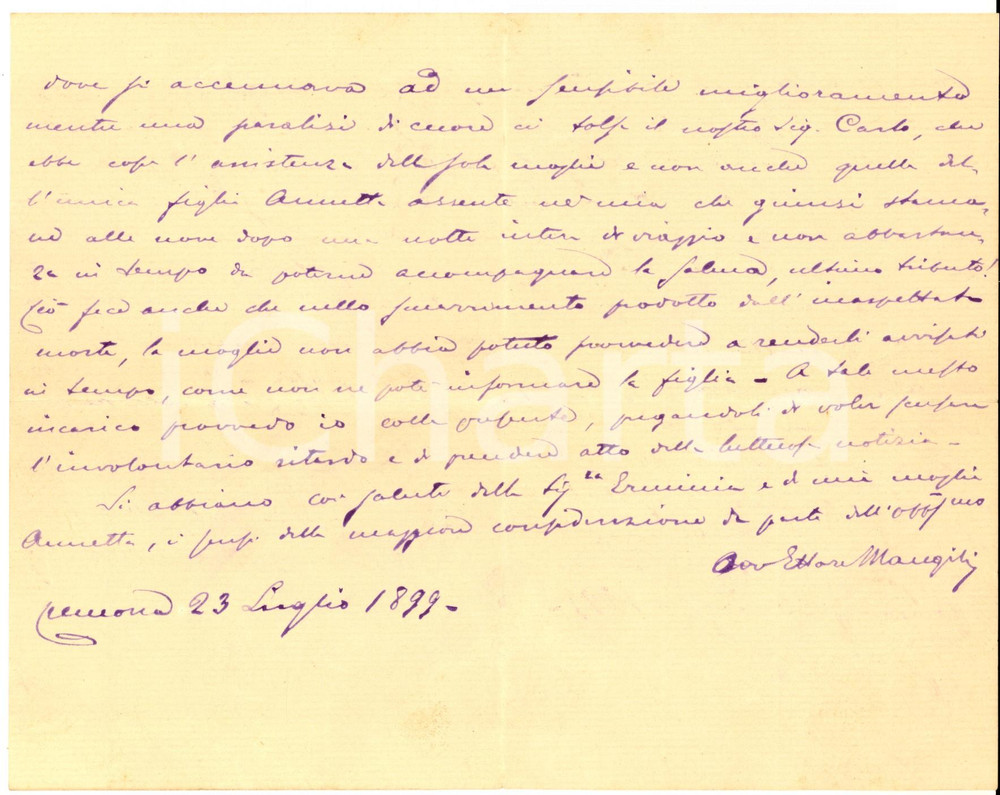 dove si accennava ad un sensibile miglioramento
mentre una paralisi di cuore ci tolse il nostro Sig. Carlo, che
ebbe così l'assistenza della sola moglie e non anche quella del-
l'unica figlia Annetta assente nè mia che giunsi stama-
ne alle nove dopo una notte intera di viaggio e non abbastan-
za in tempo da poterne accompagnare la salma, ultimo tributo!
Ciò fece anche che nello smarrimento prodotto dall'inaspettata
morte, la moglie non abbia potuto provvedere a renderli avvisati
in tempo, come non ne potè informare la figlia - A tale mesto
incarico provvedo io colla presente, pregandoli di voler scusare
l'involontario ritardo e di prendere atto della luttuosa notizia -
Si abbiano coi saluti della Sig.ra Erminia e di mia moglie
Annetta, i sensi della maggiore considerazione da parte dell'obbgmo
Avv Ettore Mangili
Cremona 23 Luglio 1899 -
iCharta